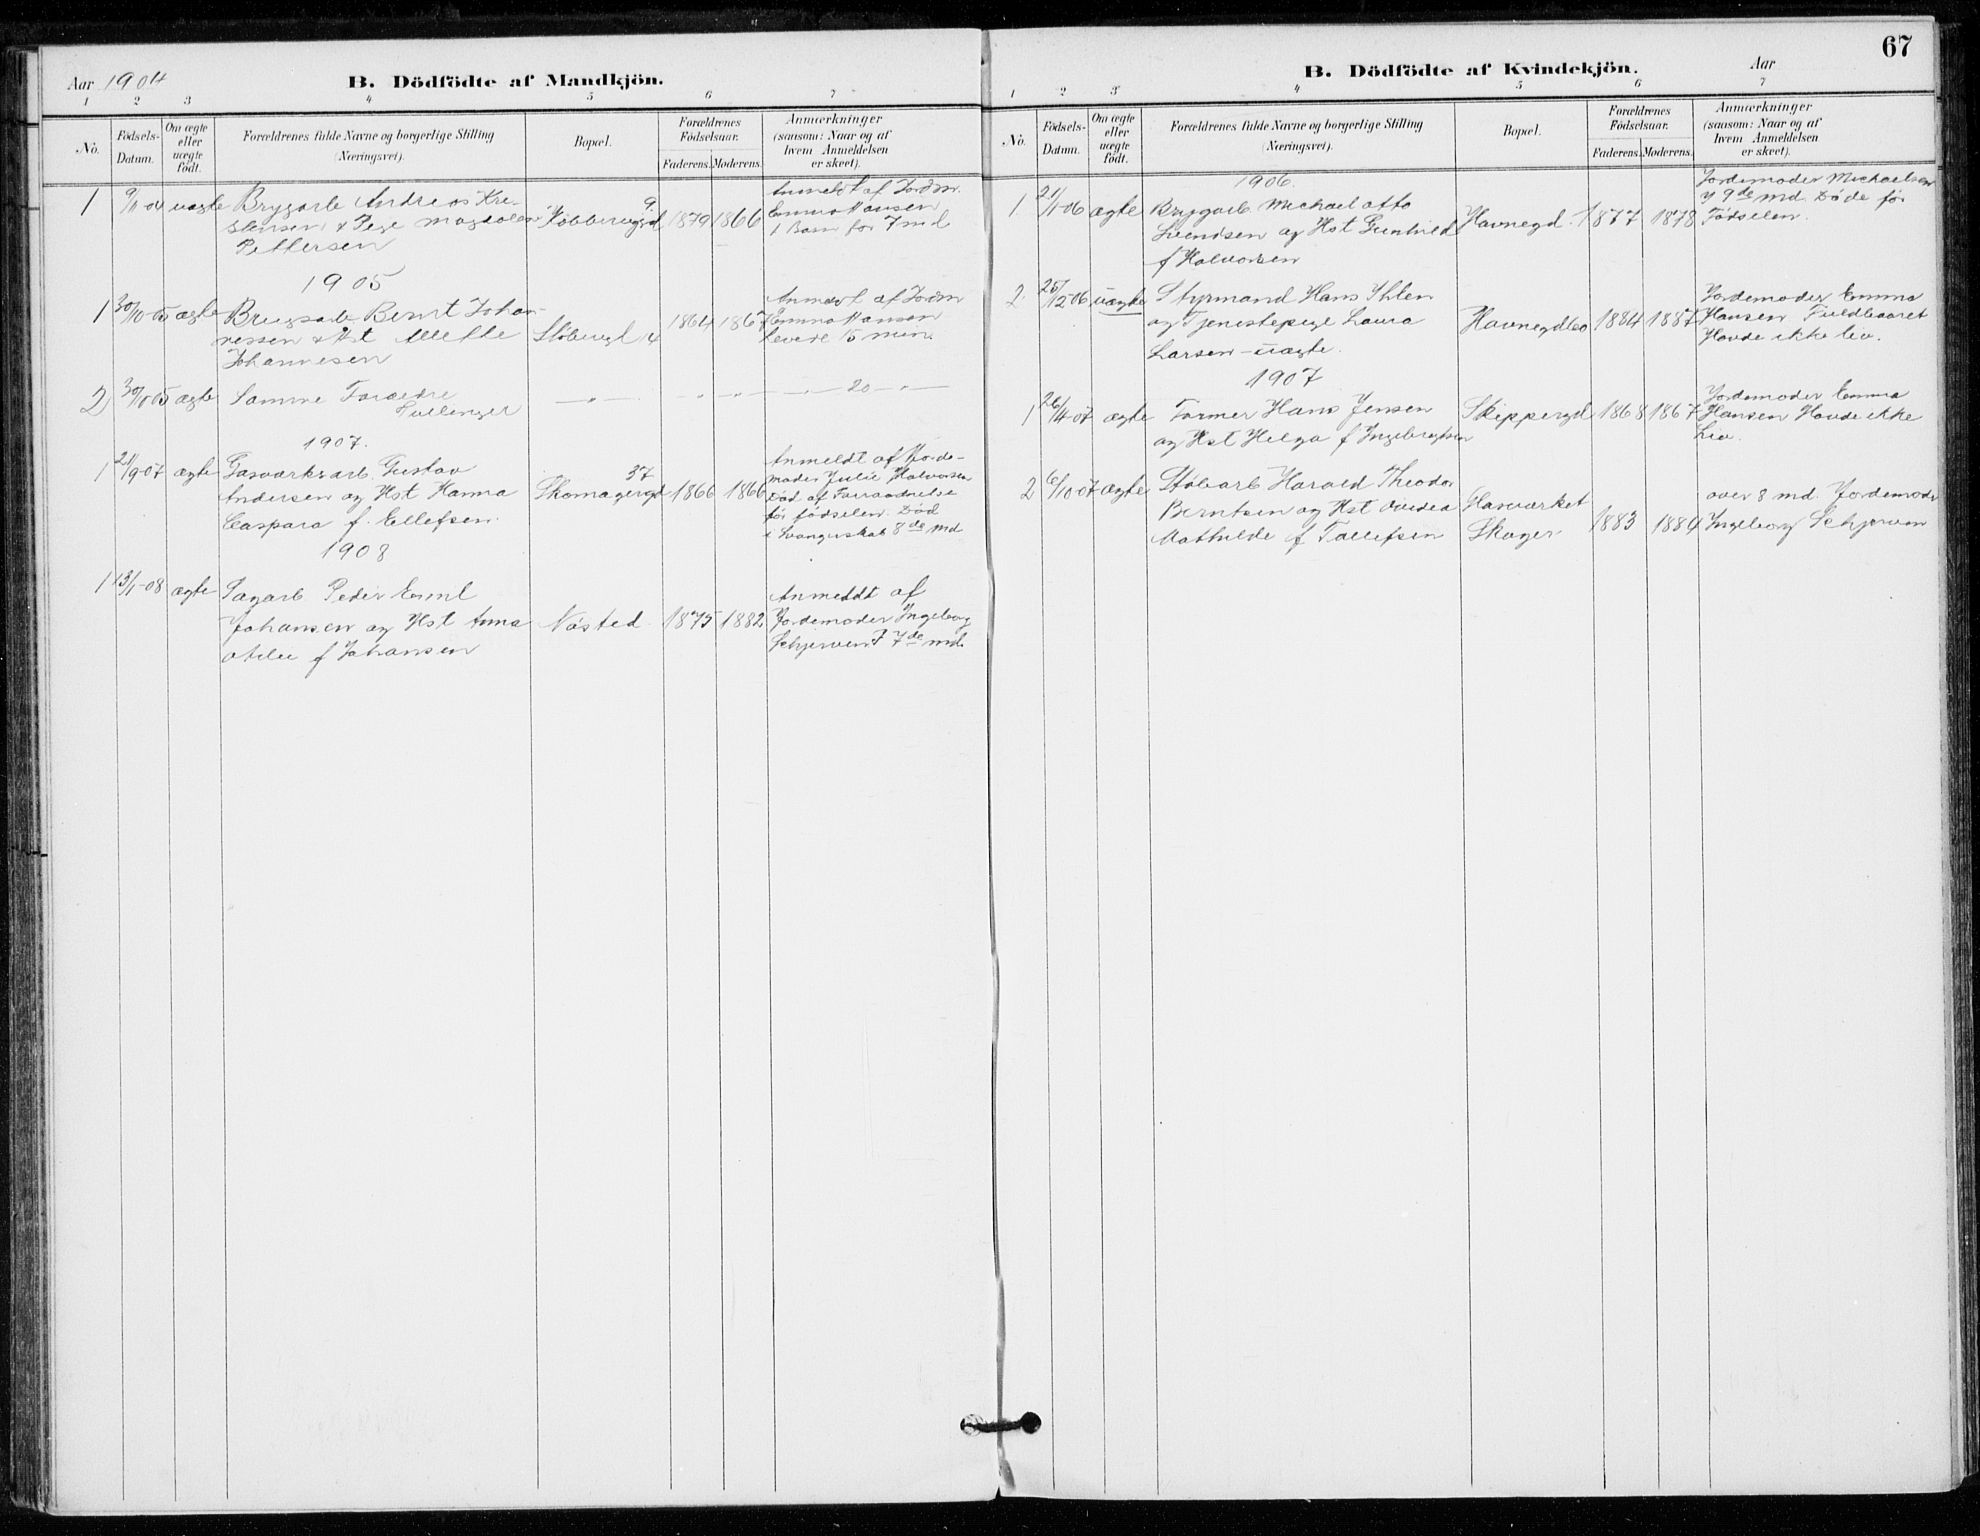 Aar 1904
B. Dödfödte af Mandkjön.
1 2 3 4 5 6 7
No.
Födsels-
Datum.
Om ægte
eller
uægte
födt.
Forældrenes fulde Navne og borgerlige Stilling
(Næringsvei).
Bopæl.
Forældrenes
Födselsaar.
Faderens. Moderens.
Anmærkninger
(saasom: Naar og af
hvem Anmeldelsen
er skeet).
1 9/11-04 uægte Bryggarb Andreas Kri-
stensen & Pige Magdalene
Pettersen
9
1879 1866
Anmeldt af Jordm.
Emma Hansen
1 Barn for 7 md
1905
1 30/10-05 ægte Brugsarb. Bernt Johan-
nessen & Hst Mette
Johannesen
Støbergd 4
1864 1867
Anmeldt af Jordm
Emma Hansen
levede 15 min.
2 30/10 05 ægte Samme Forældre
Tvillinger
— „ — „ „ — „ — 20 — „ —
1907.
1 21/9-07 ægte Gasværksarb. Gustav
Andersen og Hst Hanna
Caspara f. Ellefsen.
37
Skomagergd
1866 1866
Anmeldt af Jorde-
moder Julie Halvorsen
Død af Forraadnelse
før fødselen. Død
i Svangerskab 8de Md
1908
1 13/1-08 ægte Sagarb Peder Emil
Johansen og Hst Anna
Otilie f Johansen
Nøsted
1875 1882
Anmeldt af
Jordemoder Ingeborg
Schjerven I 7de md.
67
B. Dödfödte af Kvindekjön.
Aar
1 2 3 4 5 6 7
No.
Födsels-
Datum.
Om ægte
eller
uægte
födt.
Forældrenes fulde Navne og borgerlige Stilling
(Næringsvei).
Bopæl.
Forældrenes
Födselsaar.
Faderens. Moderens.
Anmærkninger
(saasom: Naar og af
hvem Anmeldelsen
er skeet).
1906.
1 21/1-06 ægte Bryggarb. Michael Otto
Svendsen og Hst Gunhild
f Halvorsen
Havnegd. 1877 1878
Jordemoder Michaelsen
9de md. Døde før
Fødselen.
2. 25/12-06 uægte Styrmand Hans Ihlen
og Tjenestepige Laura
Larsen – uægte.
1884 1887
Jordemoder Emma
Hansen Fuldbaaret
Havde ikke liv.
1907
1 26/4-07 ægte Former Hans Jensen
og Hst Helga f Ingebrigtsen
Skippergd 1868 1867
Jordemoder Emma
Hansen Havde ikke
Liv.
2 6/10-07 ægte Støbarb Harald Theodor
Berntsen og Hst Ovidea
Mathilde f Tollefsen
Gasværket
Skoger
1883 1884
over 8 md. Jordemoder
Ingeborg Schjerven